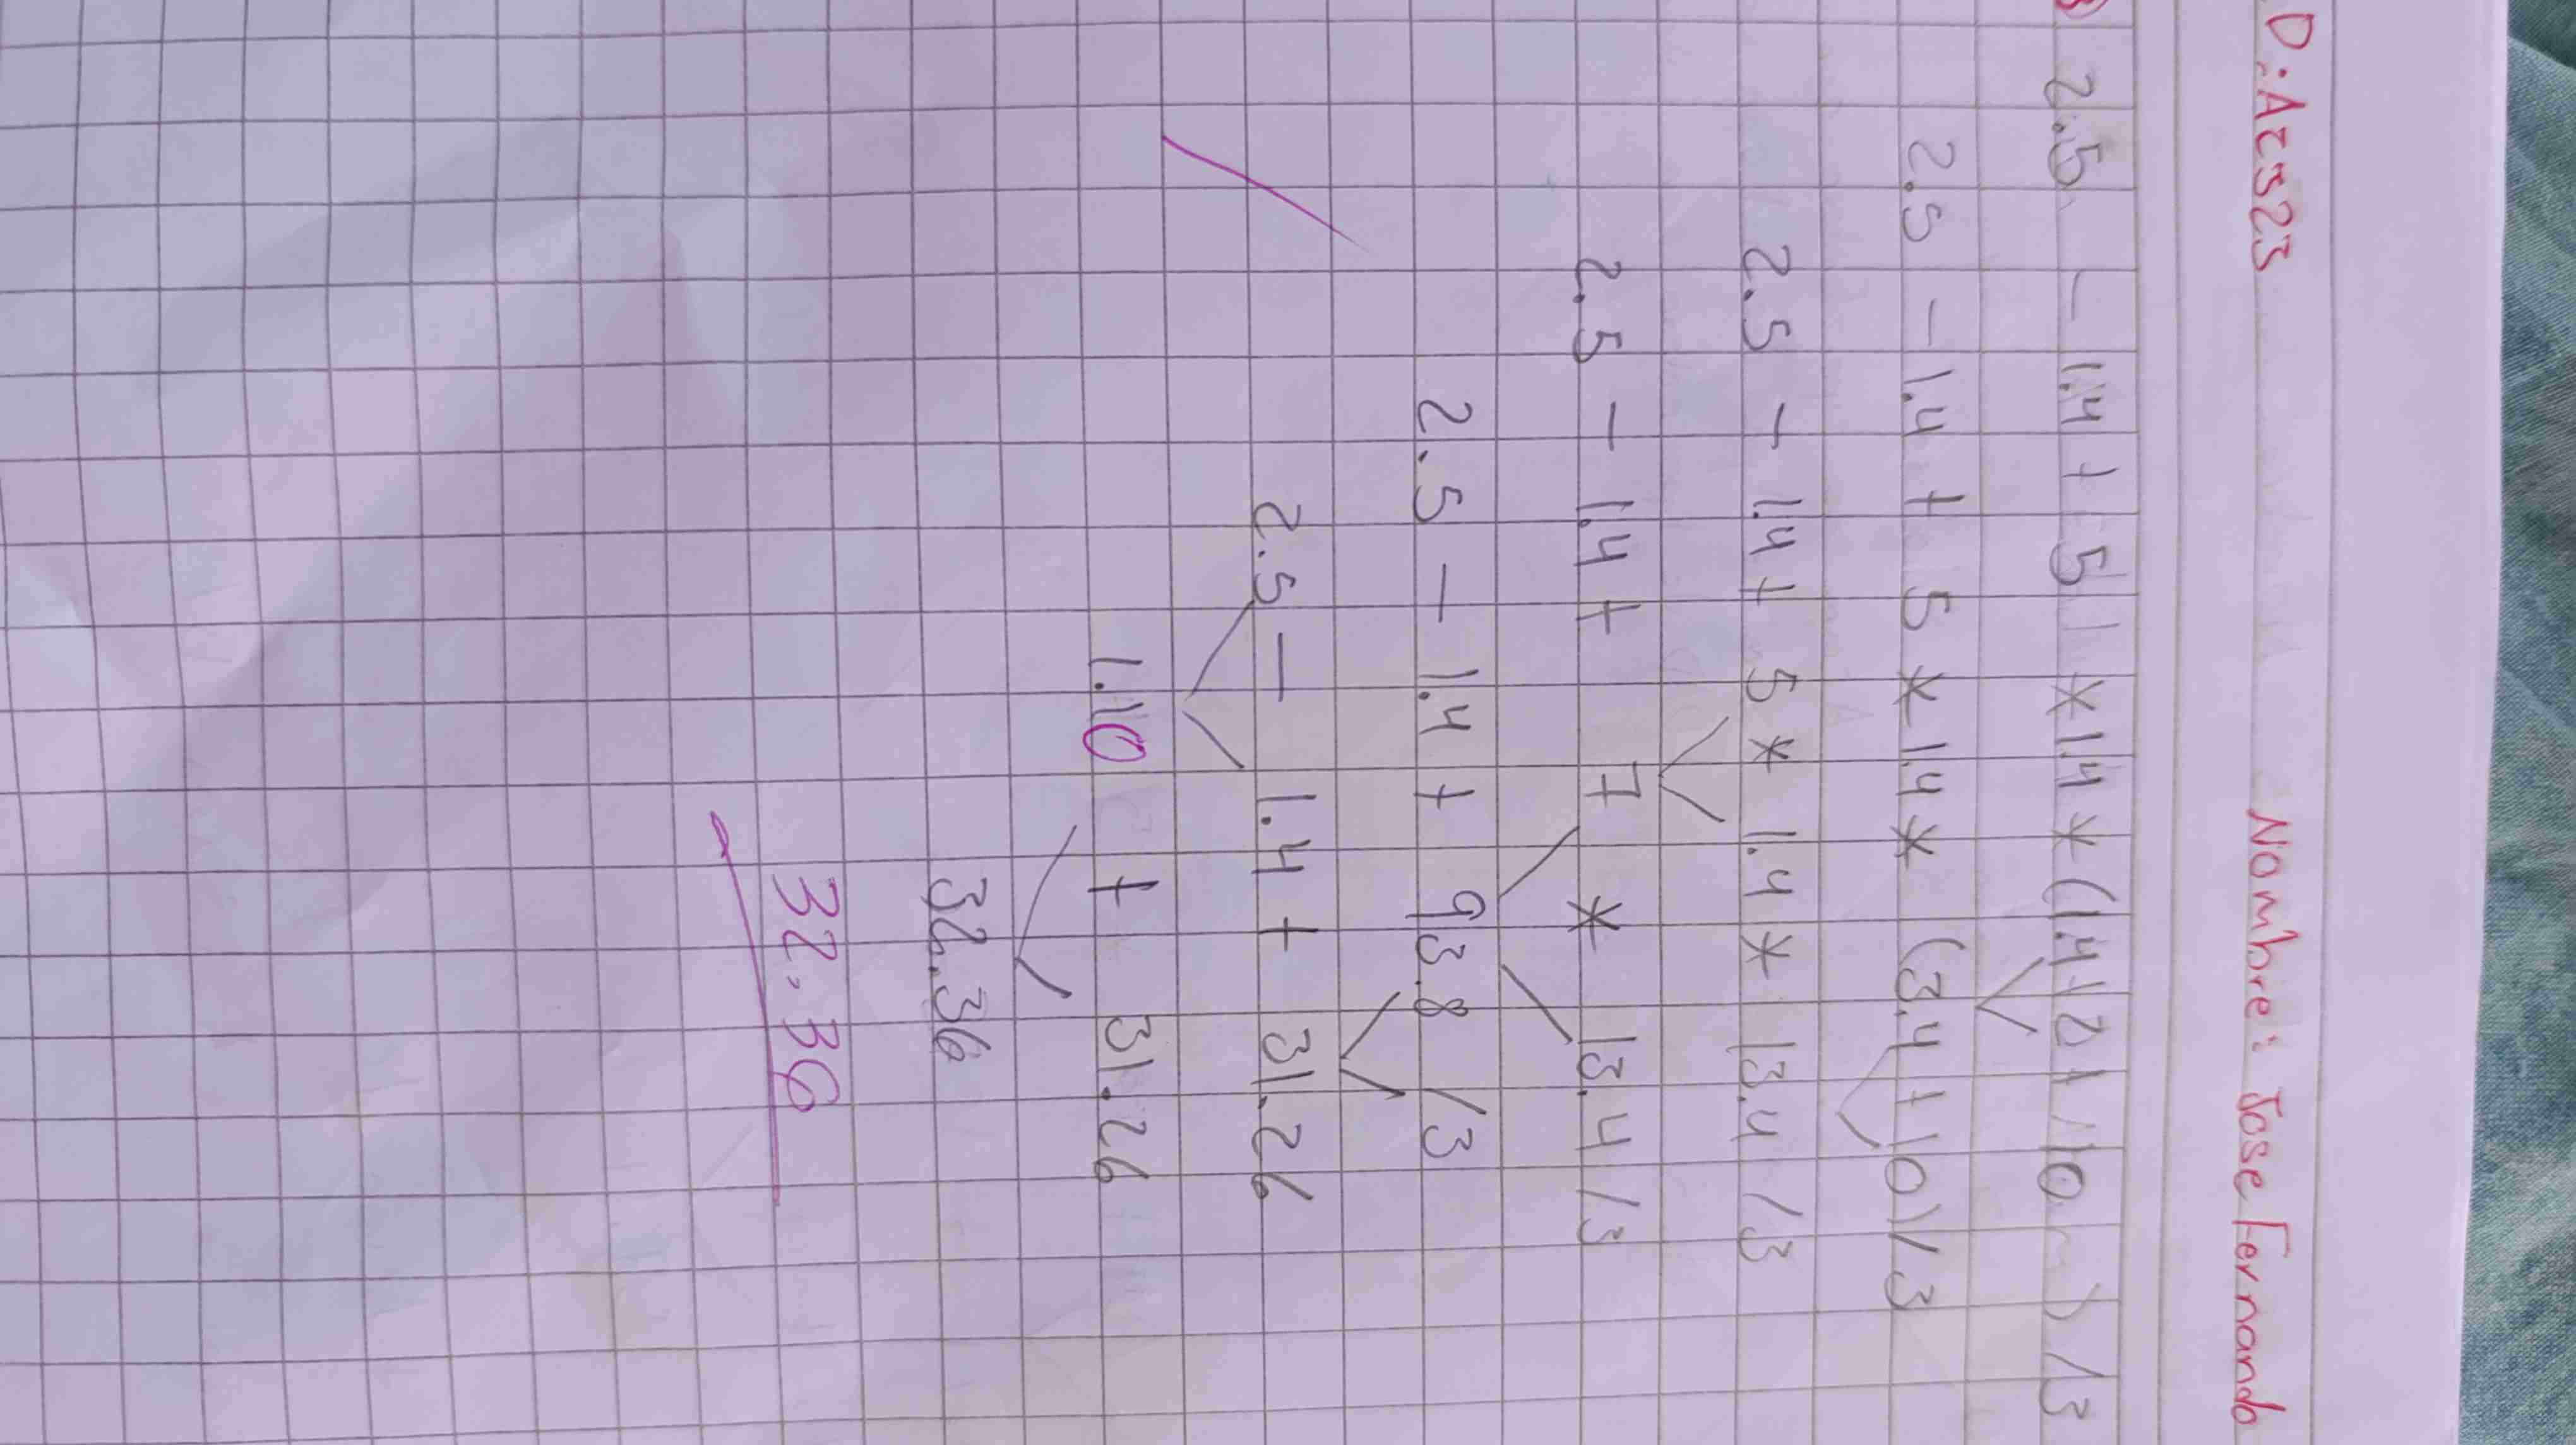 D: Acs23 Nombre: Jose Fernando
2.5 - 1.4 + 5 * 1.4 * (1.4 + 2 + 10) / 3
2.5 - 1.4 + 5 * 1.4 * (3.4 + 10) / 3
2.5 - 1.4 + 5 * 1.4 * 13.4 / 3
2.5 - 1.4 + 7 * 13.4 / 3
2.5 - 1.4 + 93.8 / 3
2.5 - 1.4 + 31.26
1.10 + 31.26
32.36
32.36